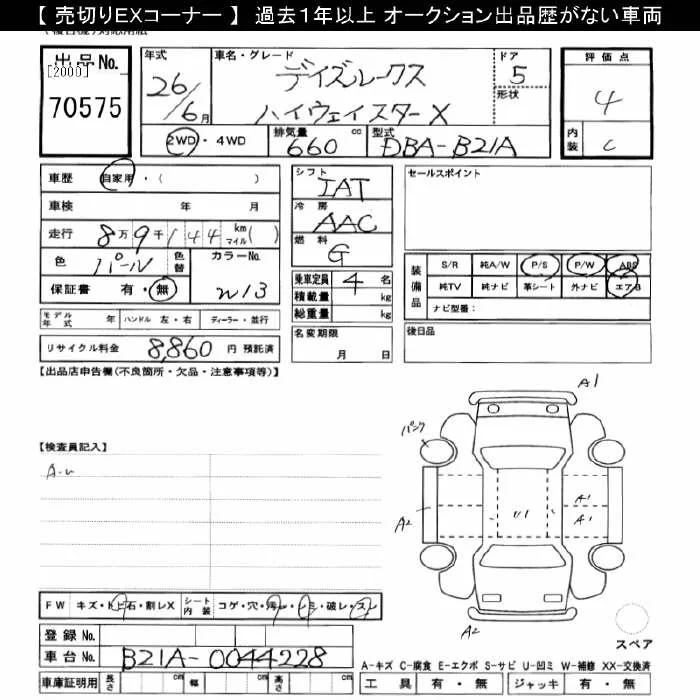 【 売切りEXコーナー 】 過去1年以上 オークション出品歴がない車両
出品No.
[2000]
70575
年式
26/6月
車名・グレード
デイズルークス
ハイウェイスターX
ドア
5
形状
評価点
4
内装
C
2WD・4WD
排気量
660 cc
型式
DBA-B21A
車歴 自家用・( )
車検 年 月
走行 8万9千144 km マイル( )
色 パール 色替
カラーNo.
W13
保証書 有・無
シフト
IAT
冷房
AAC
燃料
G
乗車定員 4 名
積載量 kg
総重量 kg
セールスポイント
装備品
S/R 純A/W P/S P/W ABS
純TV 純ナビ 革シート 外ナビ エアB
ナビ型番:
モデル年式 年 ハンドル 左・右 ディーラー・並行
リサイクル料金 8,860 円 預託済
名変期限
月 日
後日品
【出品店申告欄(不良箇所・欠品・注意事項等)】
A1
パンク
【検査員記入】
A1
A2
A1
A2
FW キズ・ト石・割レX
シート内装 コゲ・穴・汚レ・シミ・破レ・スレ
登録No.
車台No. B21A-0044228
スペア
A-キズ C-腐食 E-エクボ S-サビ U-凹ミ W-補修 XX-交換済
車庫証明用 長さ cm 幅 cm 高さ cm
工具 有・無 ジャッキ 有・無